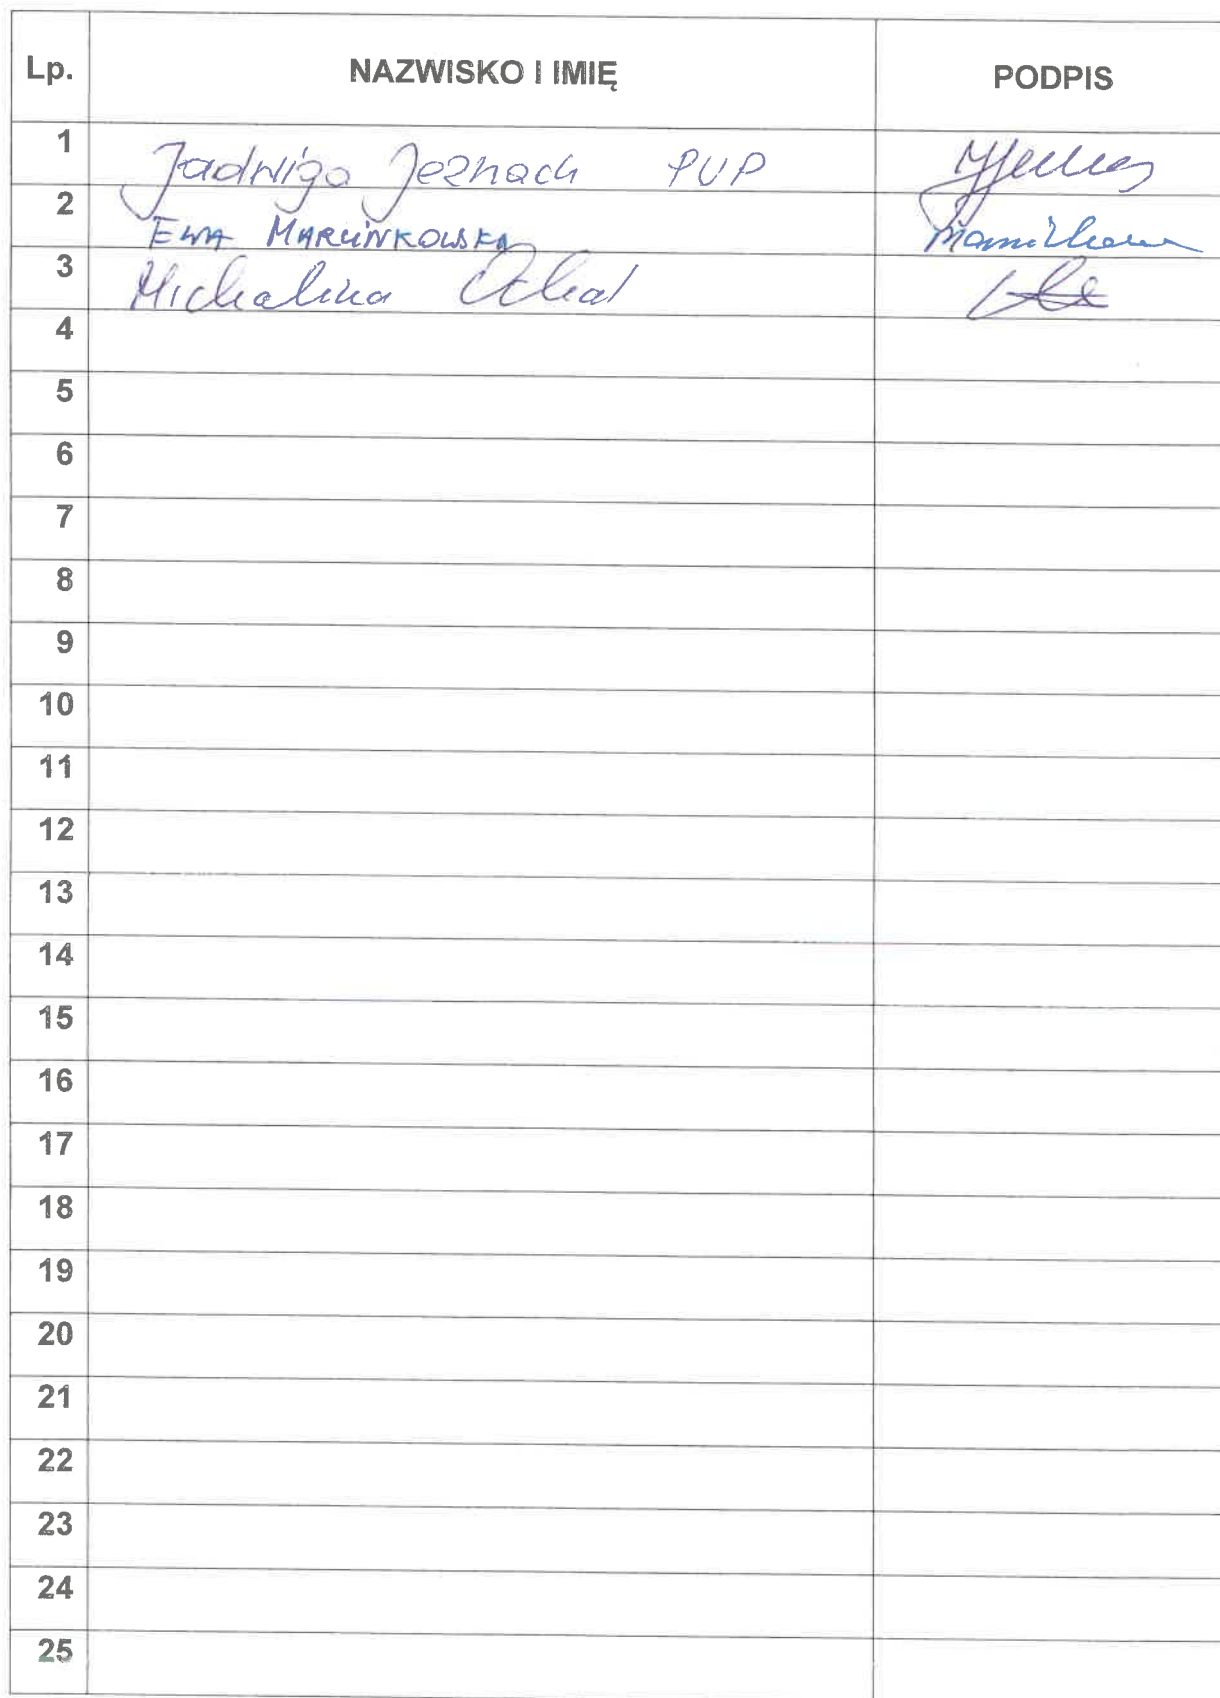 Lp. NAZWISKO I IMIĘ PODPIS
1 Jadwiga Jeznach PUP
2 EWA MARCINKOWSKA
3 Michalina
4
5
6
7
8
9
10
11
12
13
14
15
16
17
18
19
20
21
22
23
24
25